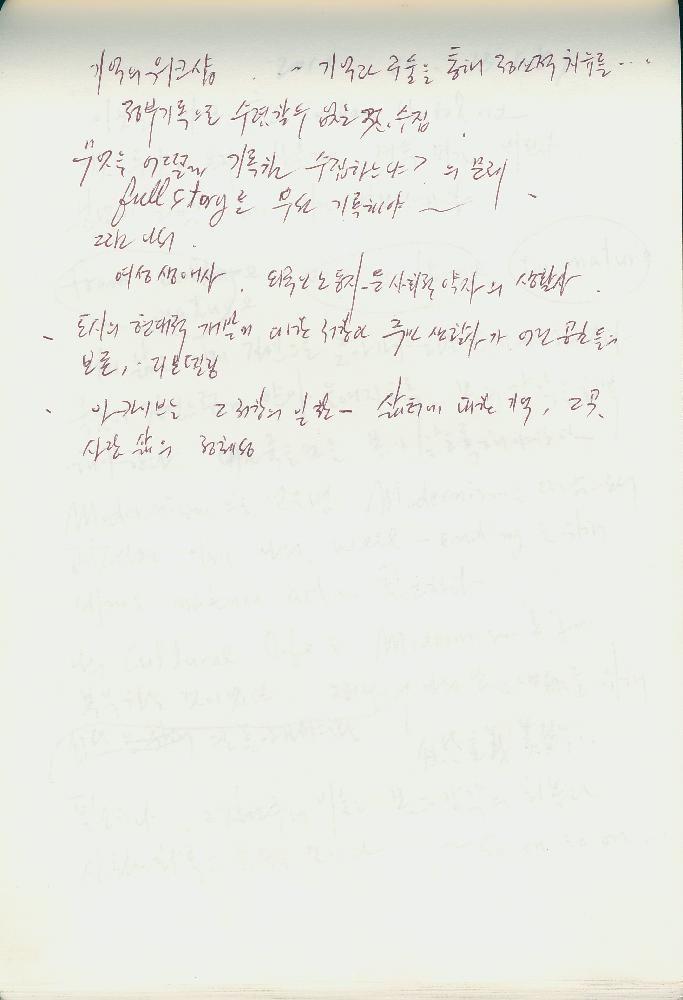 기억의 워크샵. - 기억과 구술을 통해 정신적 치유를...
정부기록으로 수렴할 수 없는 것, 수집.
무엇을 어떻게 기록하고 수집하느냐? 의 문제
full story를 우선 기록해야 ~
그리고 나서.
여성 생애사. 외국인 노동자 - 등 사회적 약자의 생활사.
- 도시의 현대적 개발에 대한 저항과 주민 생활사가 어린 공간들의
보존, 리모델링
- 아카이브는 그 저항의 일환 - 삶터에 대한 기억, 그곳,
사람 삶의 정체성